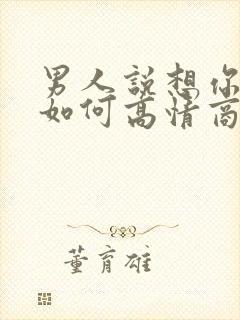 男人說想你
如何高情商
董育雄